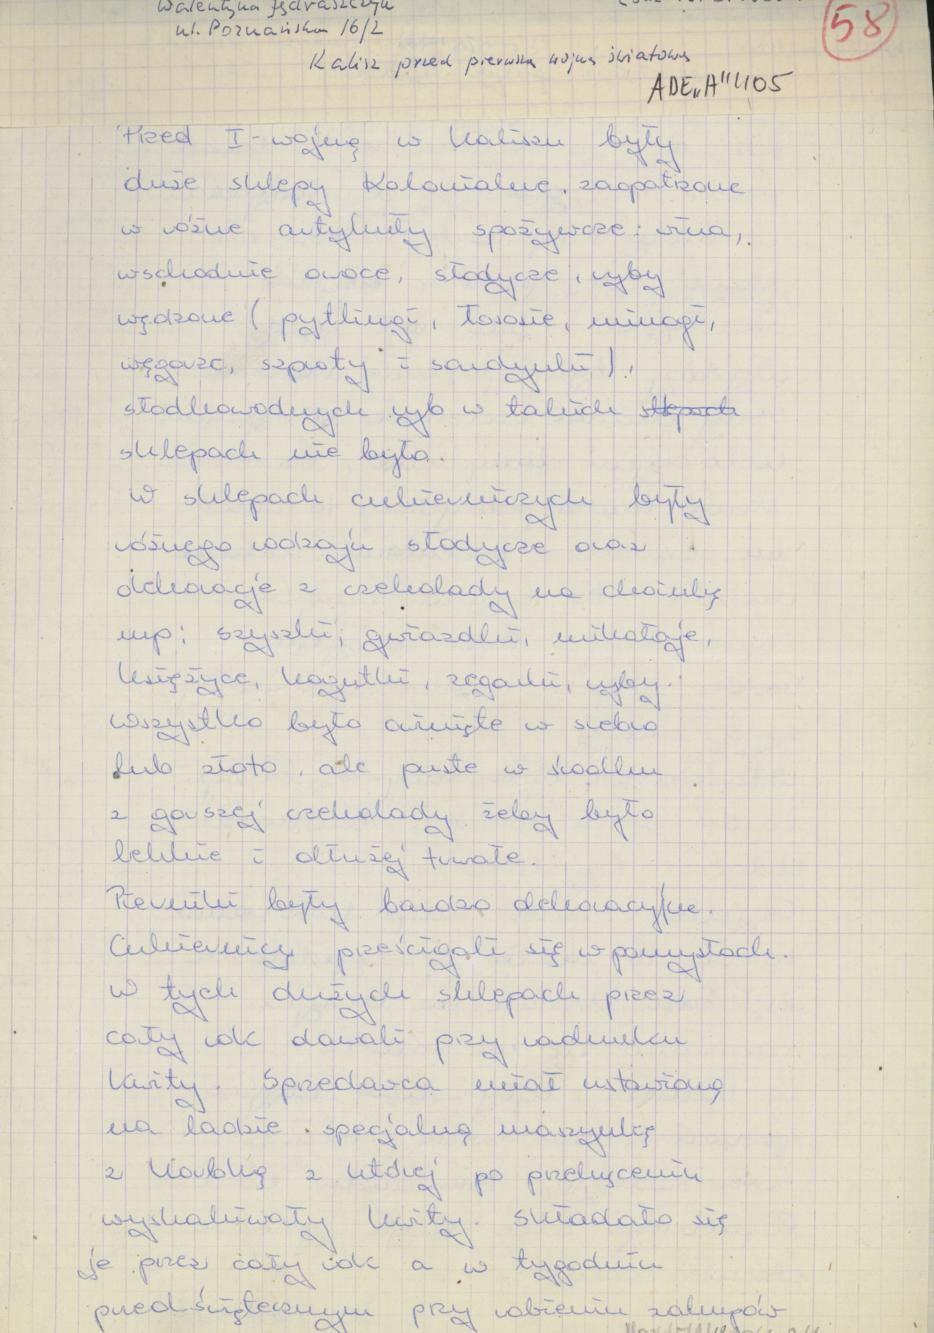 Walentyna Jędraszczyk
ul. Poznańska 16/2
58
Kalisz przed pierwszą wojną światową
ADE„A"1105
Przed I-wojną w Kaliszu były
duże sklepy kolonialne. zaopatrzone
w różne artykuły spożywcze: wina,
wschodnie owoce, słodycze, ryby
wędzone (pytlingi, łososie, minogi,
węgorze, szproty i sardynki),
słodkowodnych ryb w takich sklepach
sklepach nie było.
W sklepach cukierniczych były
różnego rodzaju słodycze oraz
dekoracje z czekolady na choinkę
np: szyszki, gwiazdki, mikołaje,
księżyce, kogutki, zegarki, ryby.
Wszystko było owinięte w srebro
lub złoto, ale puste w środku
z gorszej czekolady żeby było
lekkie i dłużej trwałe.
Pierniki były bardzo dekoracyjne.
Cukiernicy prześcigali się w pomysłach.
W tych dużych sklepach przez
cały rok dawali przy rachunku
kwity. Sprzedawca miał ustawioną
na ladzie specjalną maszynkę
z korbką z której po przekręceniu
wyskakiwały kwity. Składało się
je przez cały rok a w tygodniu
przedświątecznym przy robieniu zakupów